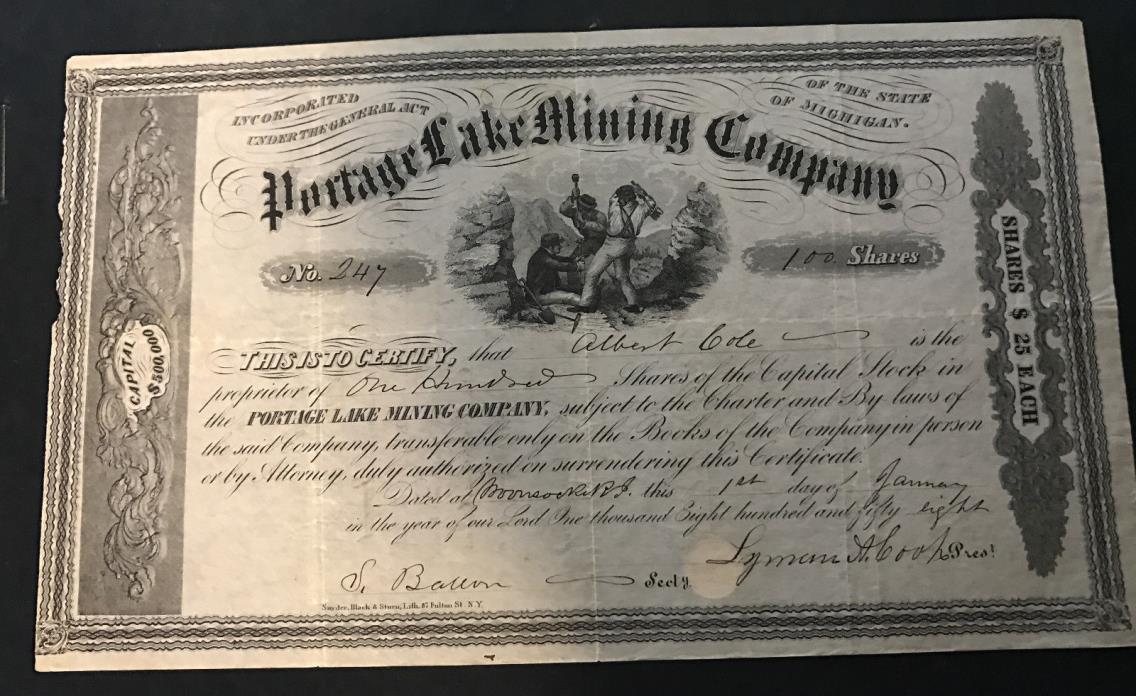 INCORPORATED
UNDER THE GENERAL ACT
OF THE STATE
OF MICHIGAN.
Portage Lake Mining Company
No. 247
100 Shares
CAPITAL
$500,000
SHARES $ 25 EACH
THIS IS TO CERTIFY, that Albert Cole is the
proprietor of One Hundred Shares of the Capital Stock in
the PORTAGE LAKE MINING COMPANY, subject to the Charter and By laws of
the said Company, transferable only on the Books of the Company in person
or by Attorney, duly authorized on surrendering this Certificate.
Dated at Woonsocket R.I. this 1st day of January
in the year of our Lord One thousand Eight hundred and fifty eight
Lyman A. Cook Prest
S. Ballou Secty.
Snyder, Black & Sturn, Lith. 87 Fulton St. N.Y.